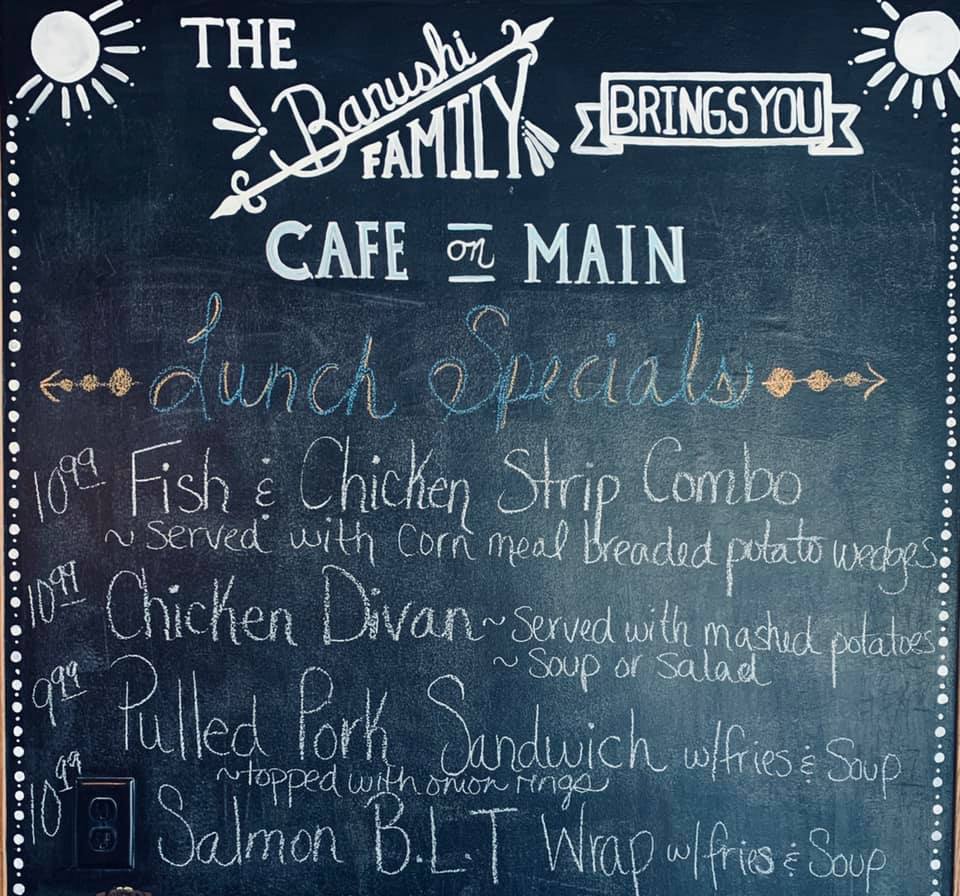 THE Banushi FAMILY BRINGS YOU
CAFE on MAIN
Lunch Specials
10.99 Fish & Chicken Strip Combo
~ Served with Corn meal breaded potato wedges
10.99 Chicken Divan ~ Served with mashed potatoes
~ Soup or Salad
9.99 Pulled Pork Sandwich w/fries & Soup
~topped with onion rings
10.99 Salmon B.L.T Wrap w/fries & Soup